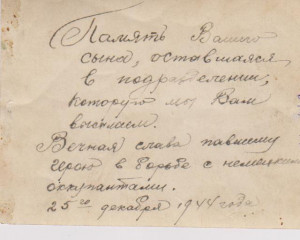 Память Вашего
сына, оставшаяся
в подразделении,
которую мы Вам
высылаем.
Вечная слава павшему
герою в борьбе с немецкими
оккупантами.
25го декабря 1944 года